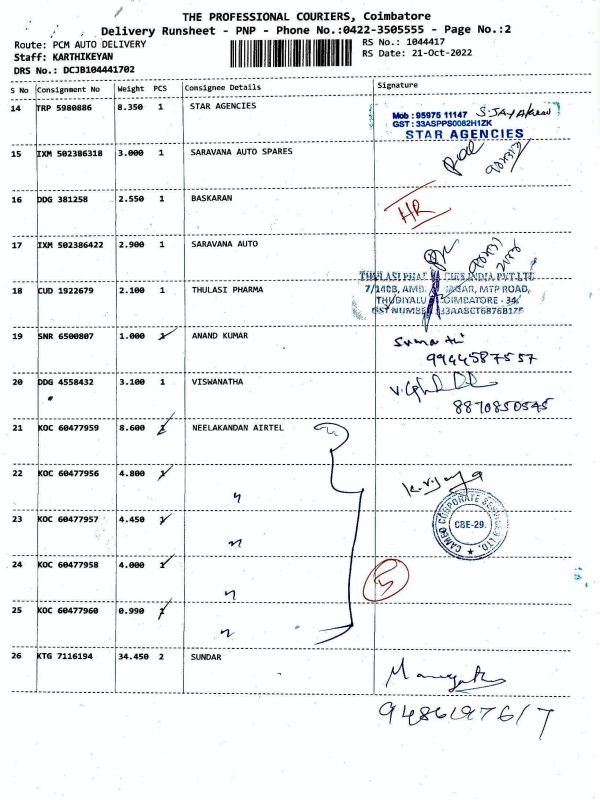 THE PROFESSIONAL COURIERS, Coimbatore
Delivery Runsheet - PNP - Phone No.:0422-3505555 - Page No.:2
Route: PCM AUTO DELIVERY
RS No.: 1044417
Staff: KARTHIKEYAN
RS Date: 21-Oct-2022
DRS No.: DCJB104441702
S No Consignment No Weight PCS Consignee Details Signature
14 TRP 5980886 8.350 1 STAR AGENCIES
Mob : 95975 11147
GST : 33ASPPS0082H1ZK
STAR AGENCIES
15 IXM 502386318 3.000 1 SARAVANA AUTO SPARES
16 DDG 381258 2.550 1 BASKARAN
HR
17 IXM 502386422 2.900 1 SARAVANA AUTO
18 CUD 1922679 2.100 1 THULASI PHARMA
INDIA PVT LTD
MTP ROAD,
COIMBATORE - 34
19 SNR 6500807 1.000 1 ANAND KUMAR
9944587557
20 DDG 4558432 3.100 1 VISWANATHA
8870850545
21 KOC 60477959 8.600 1 NEELAKANDAN AIRTEL
22 KOC 60477956 4.800 1 "
23 KOC 60477957 4.450 1 "
CAMEO CORPORATE SERVICES LTD.
CBE-29.
24 KOC 60477958 4.000 1 "
5
25 KOC 60477960 0.990 1 "
26 KTG 7116194 34.450 2 SUNDAR